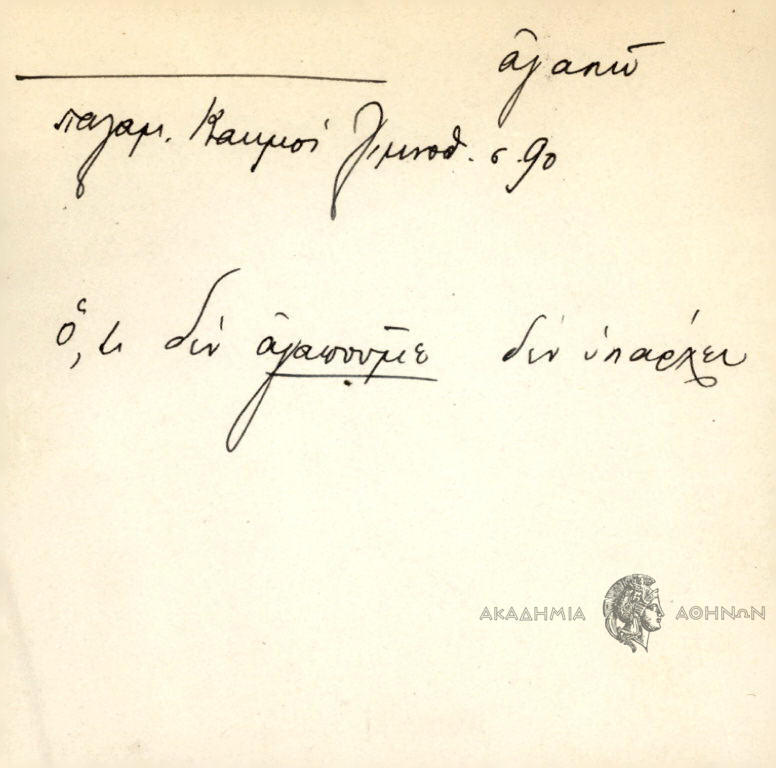 ἀγαπῶ
Παλαμ. Καημοί λιμνοθ. σ 90
Ὅ,τι δέν ἀγαποῦμε δέν ὑπάρχει
ΑΚΑΔΗΜΙΑ ΑΘΗΝΩΝ